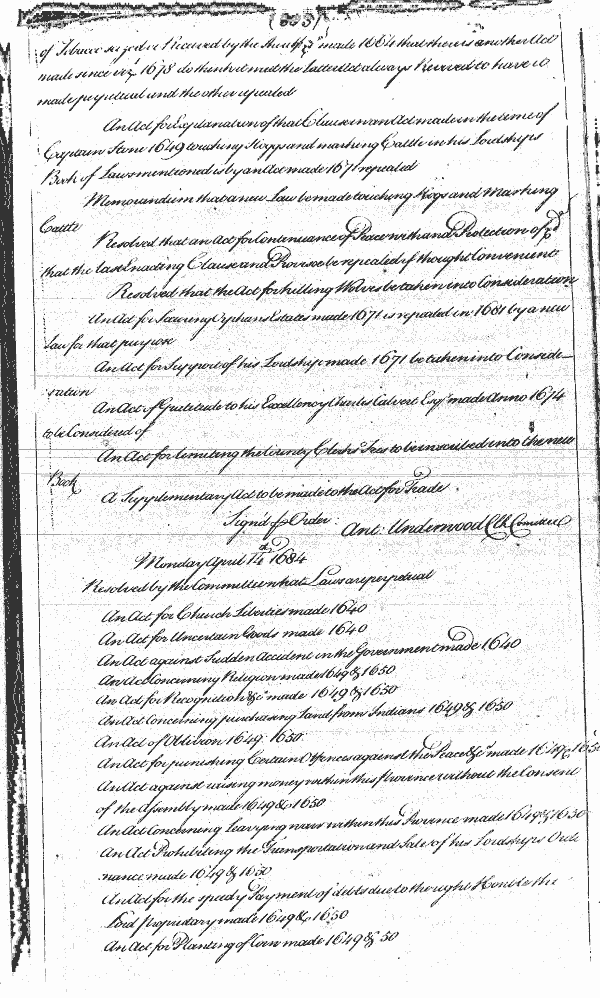 of Tobacco seized or Received by the Sheriff &c made 1664 that there is another Act
made since viz 1678 do therefore the latter Act always Reserved to have it
made perpetual and the other repealed
An Act for Explanation of that Clause in an Act made in the time of
Captain Stone 1649 touching Hoggs and marking Cattle in his Lordships
Book of Laws mentioned is by an Act made 1671 repealed
Memorandum that a new Law be made touching Hogs and Marking
Cattle
Resolved that an Act for Continuance of Peace with and Protection of
that the last Enacting Clause and Proviso be repealed if thought Convenient
Resolved that the Act for killing Wolves be taken into Consideration
An Act for Securing Orphans Estates made 1671 is repealed in 1681 by a new
Law for that purpose
An Act for Support of his Lordship made 1671 be taken into Conside-
ration
An Act of Gratitude to his Excellency Charles Calvert Esqr made Anno 1674
to be Considered of
An Act for limiting the County Clerks Fees to be inscribed into the new
Book
A Supplementary Act to be made to the Act for Trade
Signd p Order Ant: Underwood Clk Comittee
Monday April 14th 1684
Resolved by the Committee what Laws are perpetual
An Act for Church Liberties made 1640
An Act for Uncertain Goods made 1640
An Act against Sudden Accident in the Government made 1640
An Act Concerning Religion made 1649 & 1650
An Act for Recognition &c made 1649 & 1650
An Act Concerning purchasing Land from Indians 1649 & 1650
An Act of Oblivion 1649. 1650.
An Act for punishing Certain Offences against the Peace &c made 1649 & 1650
An Act against raising money within this Province without the Consent
of the Assembly made 1649 & 1650
An Act Concerning Leavying war within this Province made 1649 & 1650
An Act Prohibiting the Transportation and Sale of his Lordships Ord-
nance made 1649 & 1650
An Act for the speedy Payment of debts due to the right Honble the
Lord Proprietary made 1649 & 1650
An Act for Planting of Corn made 1649 & 50